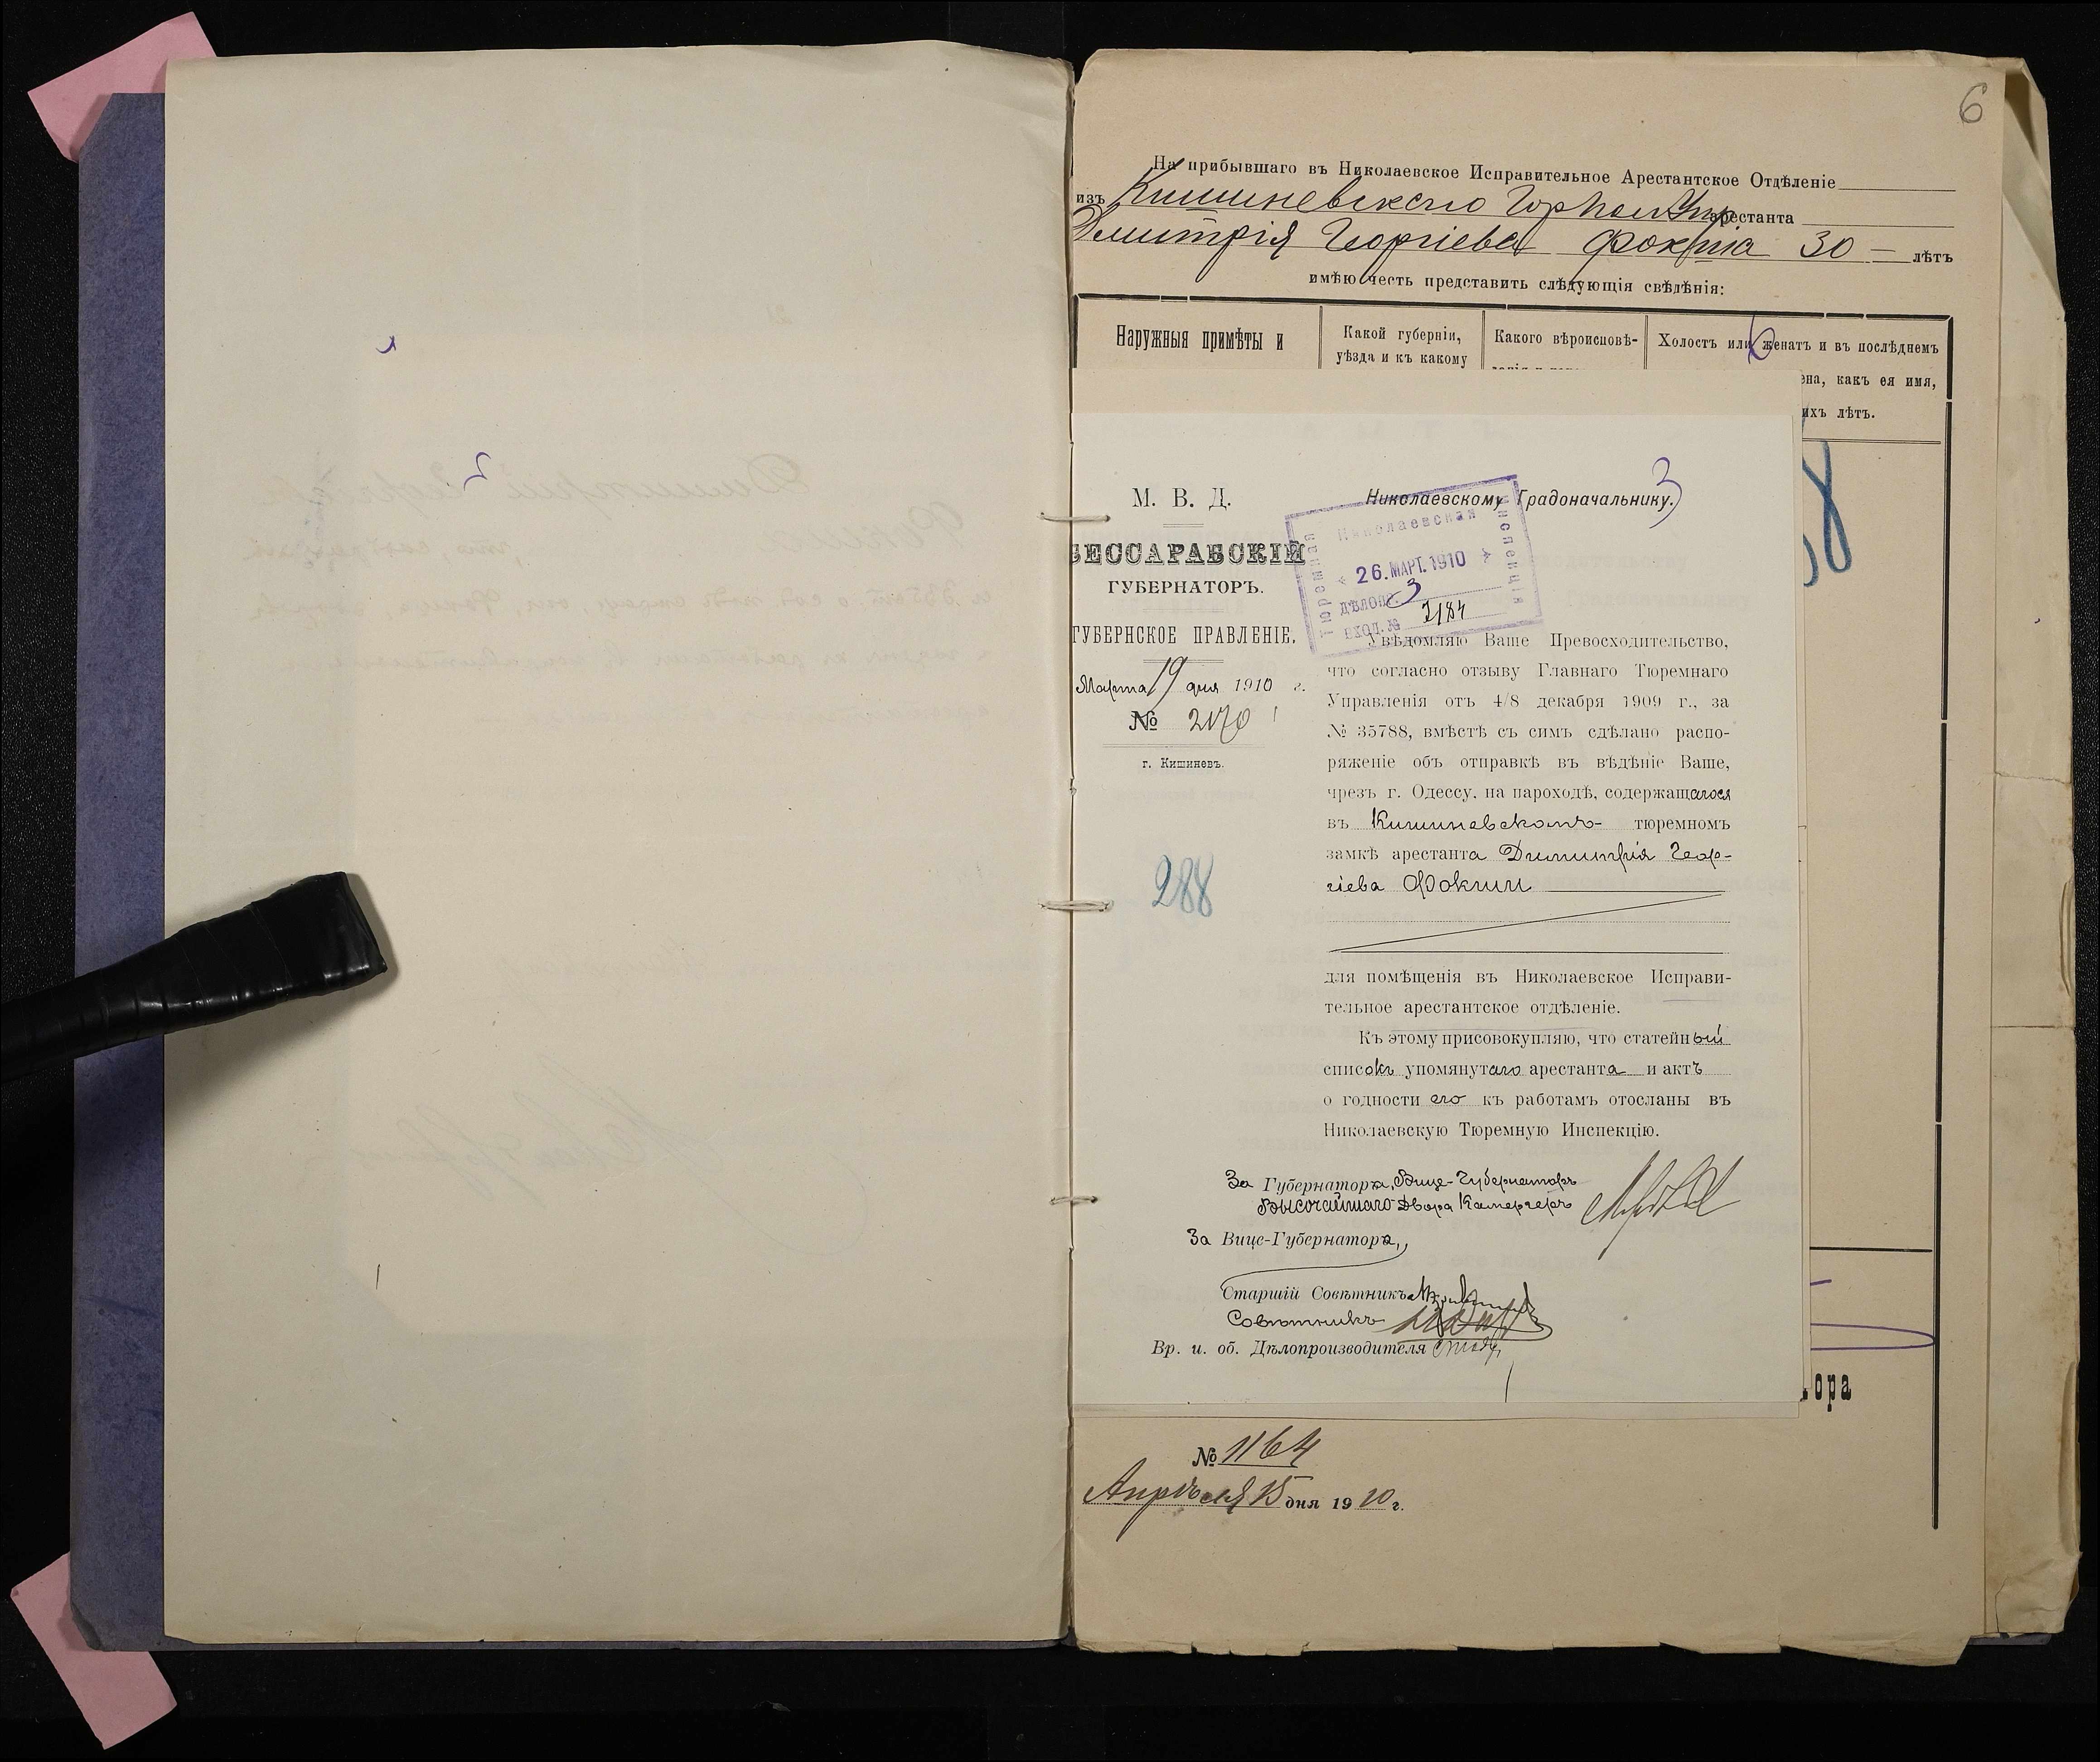 6
На прибывшаго въ Николаевское Исправительное Арестантское Отдѣленіе
изъ Кишиневскаго арестанта
Дмитрія Георгіева Фокша 30 лѣтъ
имѣю честь представить слѣдующія свѣдѣнія:
Наружныя примѣты и
Какой губерніи,
уѣзда и къ какому
Какого вѣроисповѣ-
Холостъ или женатъ и въ послѣднемъ
6
ена, какъ ея имя,
ихъ лѣтъ.
М. В. Д.
БЕССАРАБСКІЙ
ГУБЕРНАТОРЪ.
ГУБЕРНСКОЕ ПРАВЛЕНІЕ.
Марта 19 дня 1910 г.
№ 2170
г. Кишиневъ.
288
Николаевскому Градоначальнику.
3
Николаевская
Тюремная
Инспекція
26. МАРТ. 1910
ДѢЛОПР. 3
ВХОД. № 2184
Увѣдомляю Ваше Превосходительство,
что согласно отзыву Главнаго Тюремнаго
Управленія отъ 4/8 декабря 1909 г., за
№ 35788, вмѣстѣ съ симъ сдѣлано распо-
ряженіе объ отправкѣ въ вѣдѣніе Ваше,
чрезъ г. Одессу, на пароходѣ, содержащагося
въ Кишиневскомъ тюремномъ
замкѣ арестанта Димитрія Геор-
гіева Фокши
для помѣщенія въ Николаевское Исправи-
тельное арестантское отдѣленіе.
Къ этому присовокупляю, что статейный
списокъ упомянутаго арестанта и актъ
о годности его къ работамъ отосланы въ
Николаевскую Тюремную Инспекцію.
За Губернатора, Вице-Губернаторъ
Высочайшаго Двора Камергеръ
За Вице-Губернатора,
Старшій Совѣтникъ
Совѣтникъ
Вр. и. об. Дѣлопроизводителя
ора
№ 1164
Апрѣля 15 дня 1910 г.